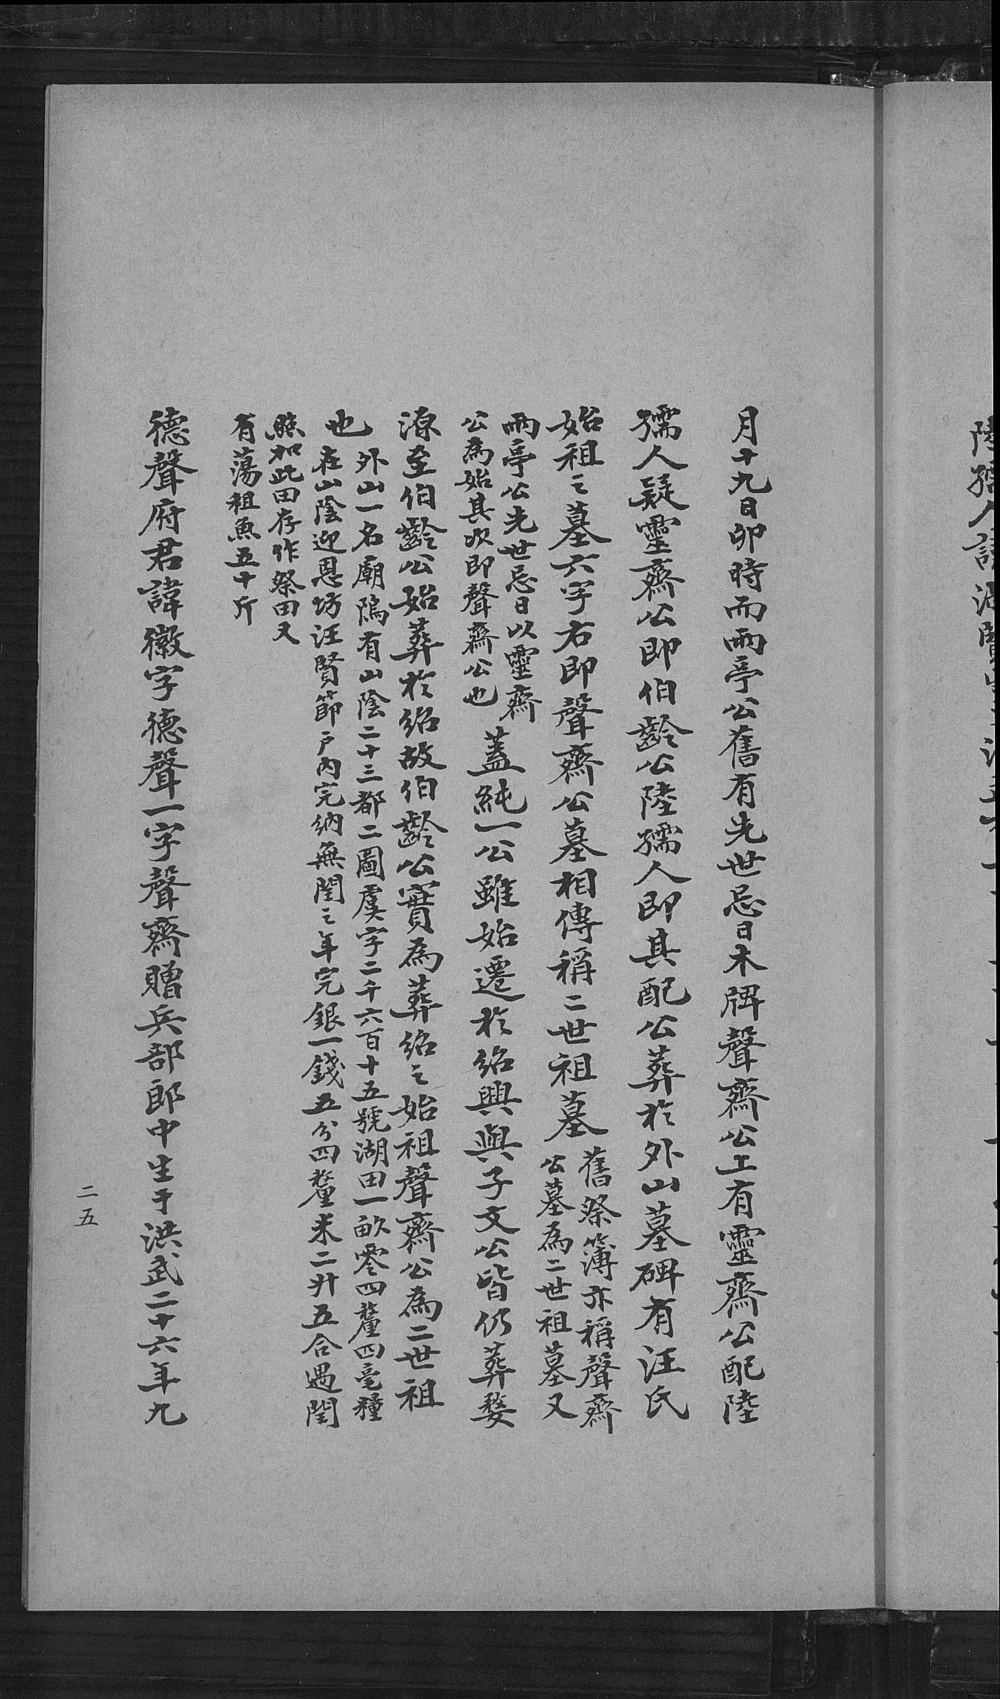 月十九日卯時而兩亭公舊有先世忌日木牌聲齋公上有靈齋公配陸
孺人疑靈齋公即伯齡公陸孺人即其配公葬於外山墓碑有汪氏
始祖之墓六字右即聲齋公墓相傳稱二世祖墓舊祭簿亦稱聲齋
公墓為二世祖墓又
兩亭公先世忌日以靈齋
公為始其次即聲齋公也蓋純一公雖始遷於紹興與子文公皆仍葬婺
源至伯齡公始葬於紹故伯齡公實為葬紹之始祖聲齋公為二世祖
也外山一名廟隖有山陰二十三都二圖虞字二千六百十五號湖田一畝零四釐四毫糧
在山陰迎恩坊汪賢節戶內完納無閏之年完銀一錢五分四釐米二升五合遇閏
照加此田存作祭田又
有蕩租魚五十斤
德聲府君諱徽字德聲一字聲齋贈兵部郎中生于洪武二十六年九
二五
陸孺人